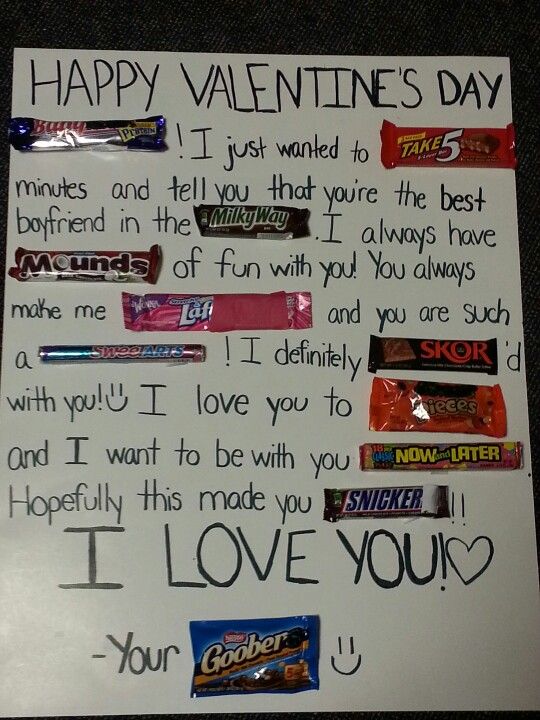 HAPPY VALENTINE'S DAY
Baby Protein ! I just wanted to TAKE 5
minutes and tell you that you're the best
boyfriend in the Milky Way . I always have
Mounds of fun with you! You always
make me Laf and you are such
a SweeTARTS ! I definitely SKOR 'd
with you! I love you to ieces
and I want to be with you NOW and LATER
Hopefully this made you SNICKER !!
I LOVE YOU!
-Your Nestle Goobers